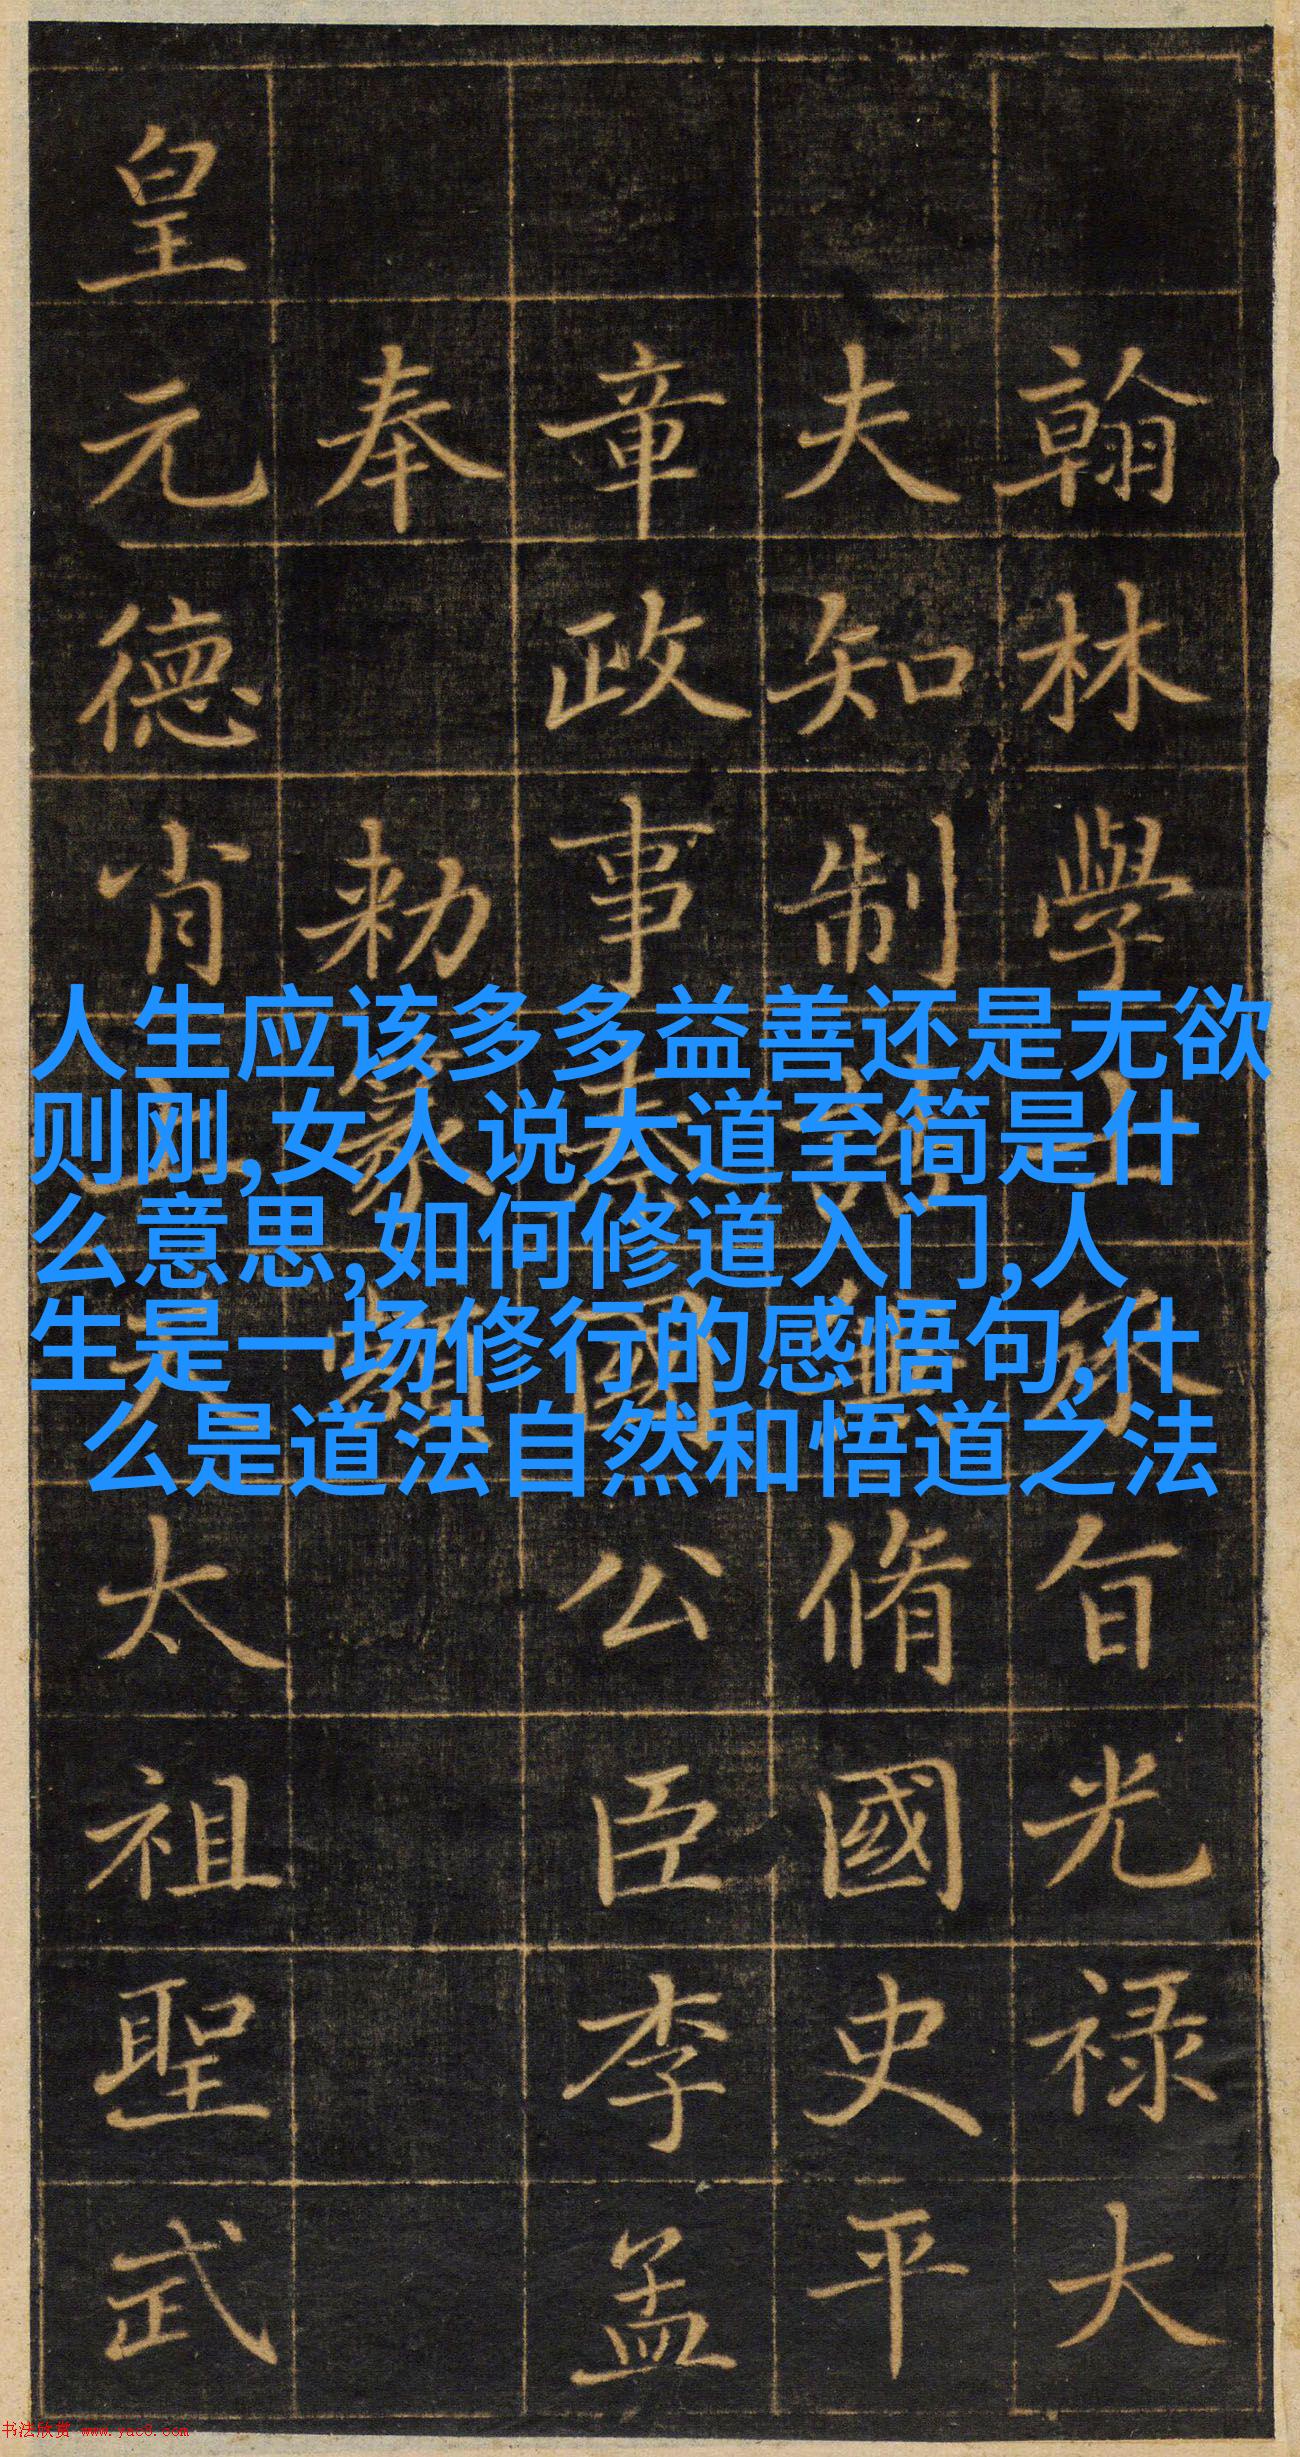 翰林學士承旨光禄大
夫知制誥兼脩國史平
章政事秦國公臣李孟
奉勑篆額
皇元德肖天太祖聖武
人生应该多多益善还是无欲
则刚,女人说大道至简是什
么意思,如何修道入门,人
生是一场修行的感悟句,什
么是道法自然和悟道之法
书法欣赏 www.yac8.com